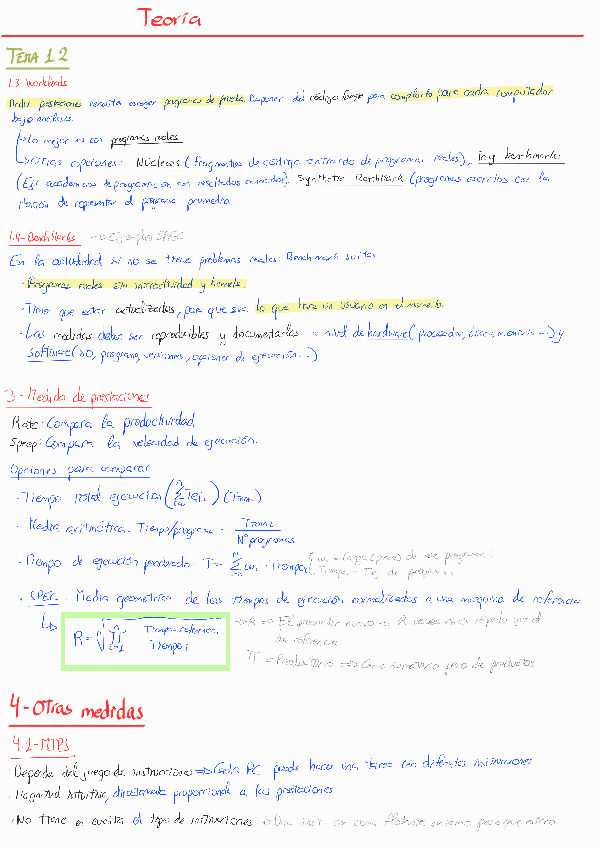 Teoría
TEMA 1.2
1.3 Workloads
Medir prestaciones necesita coger programas de prueba. Disponer del código fuente para compilarlo para cada computador
bajo análisis.
Lo mejor es con programas reales
Otras opciones: Núcleos (fragmentos de código extraído de programas reales), Toy benchmark
(Ej: académicos de programas con resultados conocidos). Synthetic Benchmark (programas escritos con la
de representar el programa promedio
1.4-Benchmarks → Ejemplos SPEC
En la actualidad si no se tiene problemas reales: Benchmark suites
· Programas reales sin interactividad y kernels.
· Tiene que estar actualizados, para que sea lo que use un usuario en el momento
· Las medidas deben ser reproducibles y documentarlas a nivel de hardware (procesador, disco, memoria...) y
software (SO, programa, versiones, opciones de ejecución...)
3-Medida de prestaciones
Rate: Compara la productividad
Speed: Compara la velocidad de ejecución.
Opciones para comparar
· Tiempo Total ejecución (∑ Tej) (Ttotal)
· Media aritmética. Tiempo/programa = Ttotal / Nº programas
· Tiempo de ejecución ponderado. T = ∑ wi · Tiempoi { wi = Carga (peso) de ese programa i
Tiempoi = Tej de programa i
· SPEC - Media geométrica de los tiempos de ejecución normalizados a una máquina de referencia
R = ⁿ√ ∏ Tiempo referencia / Tiempo i → R ⇒ El procesador nuevo es R veces más rápido que el
de referencia
∏ = Productorio ⇒ Como sumatorio pero de productos
4-Otras medidas
4.1-MIPS
· Depende del juego de instrucciones ⇒ Cada PC puede hacer una tarea con diferentes instrucciones
· Magnitud intuitiva, directamente proporcional a las prestaciones
· No tiene en cuenta el tipo de instrucciones → Una inst. en coma flotante es peor para que entero